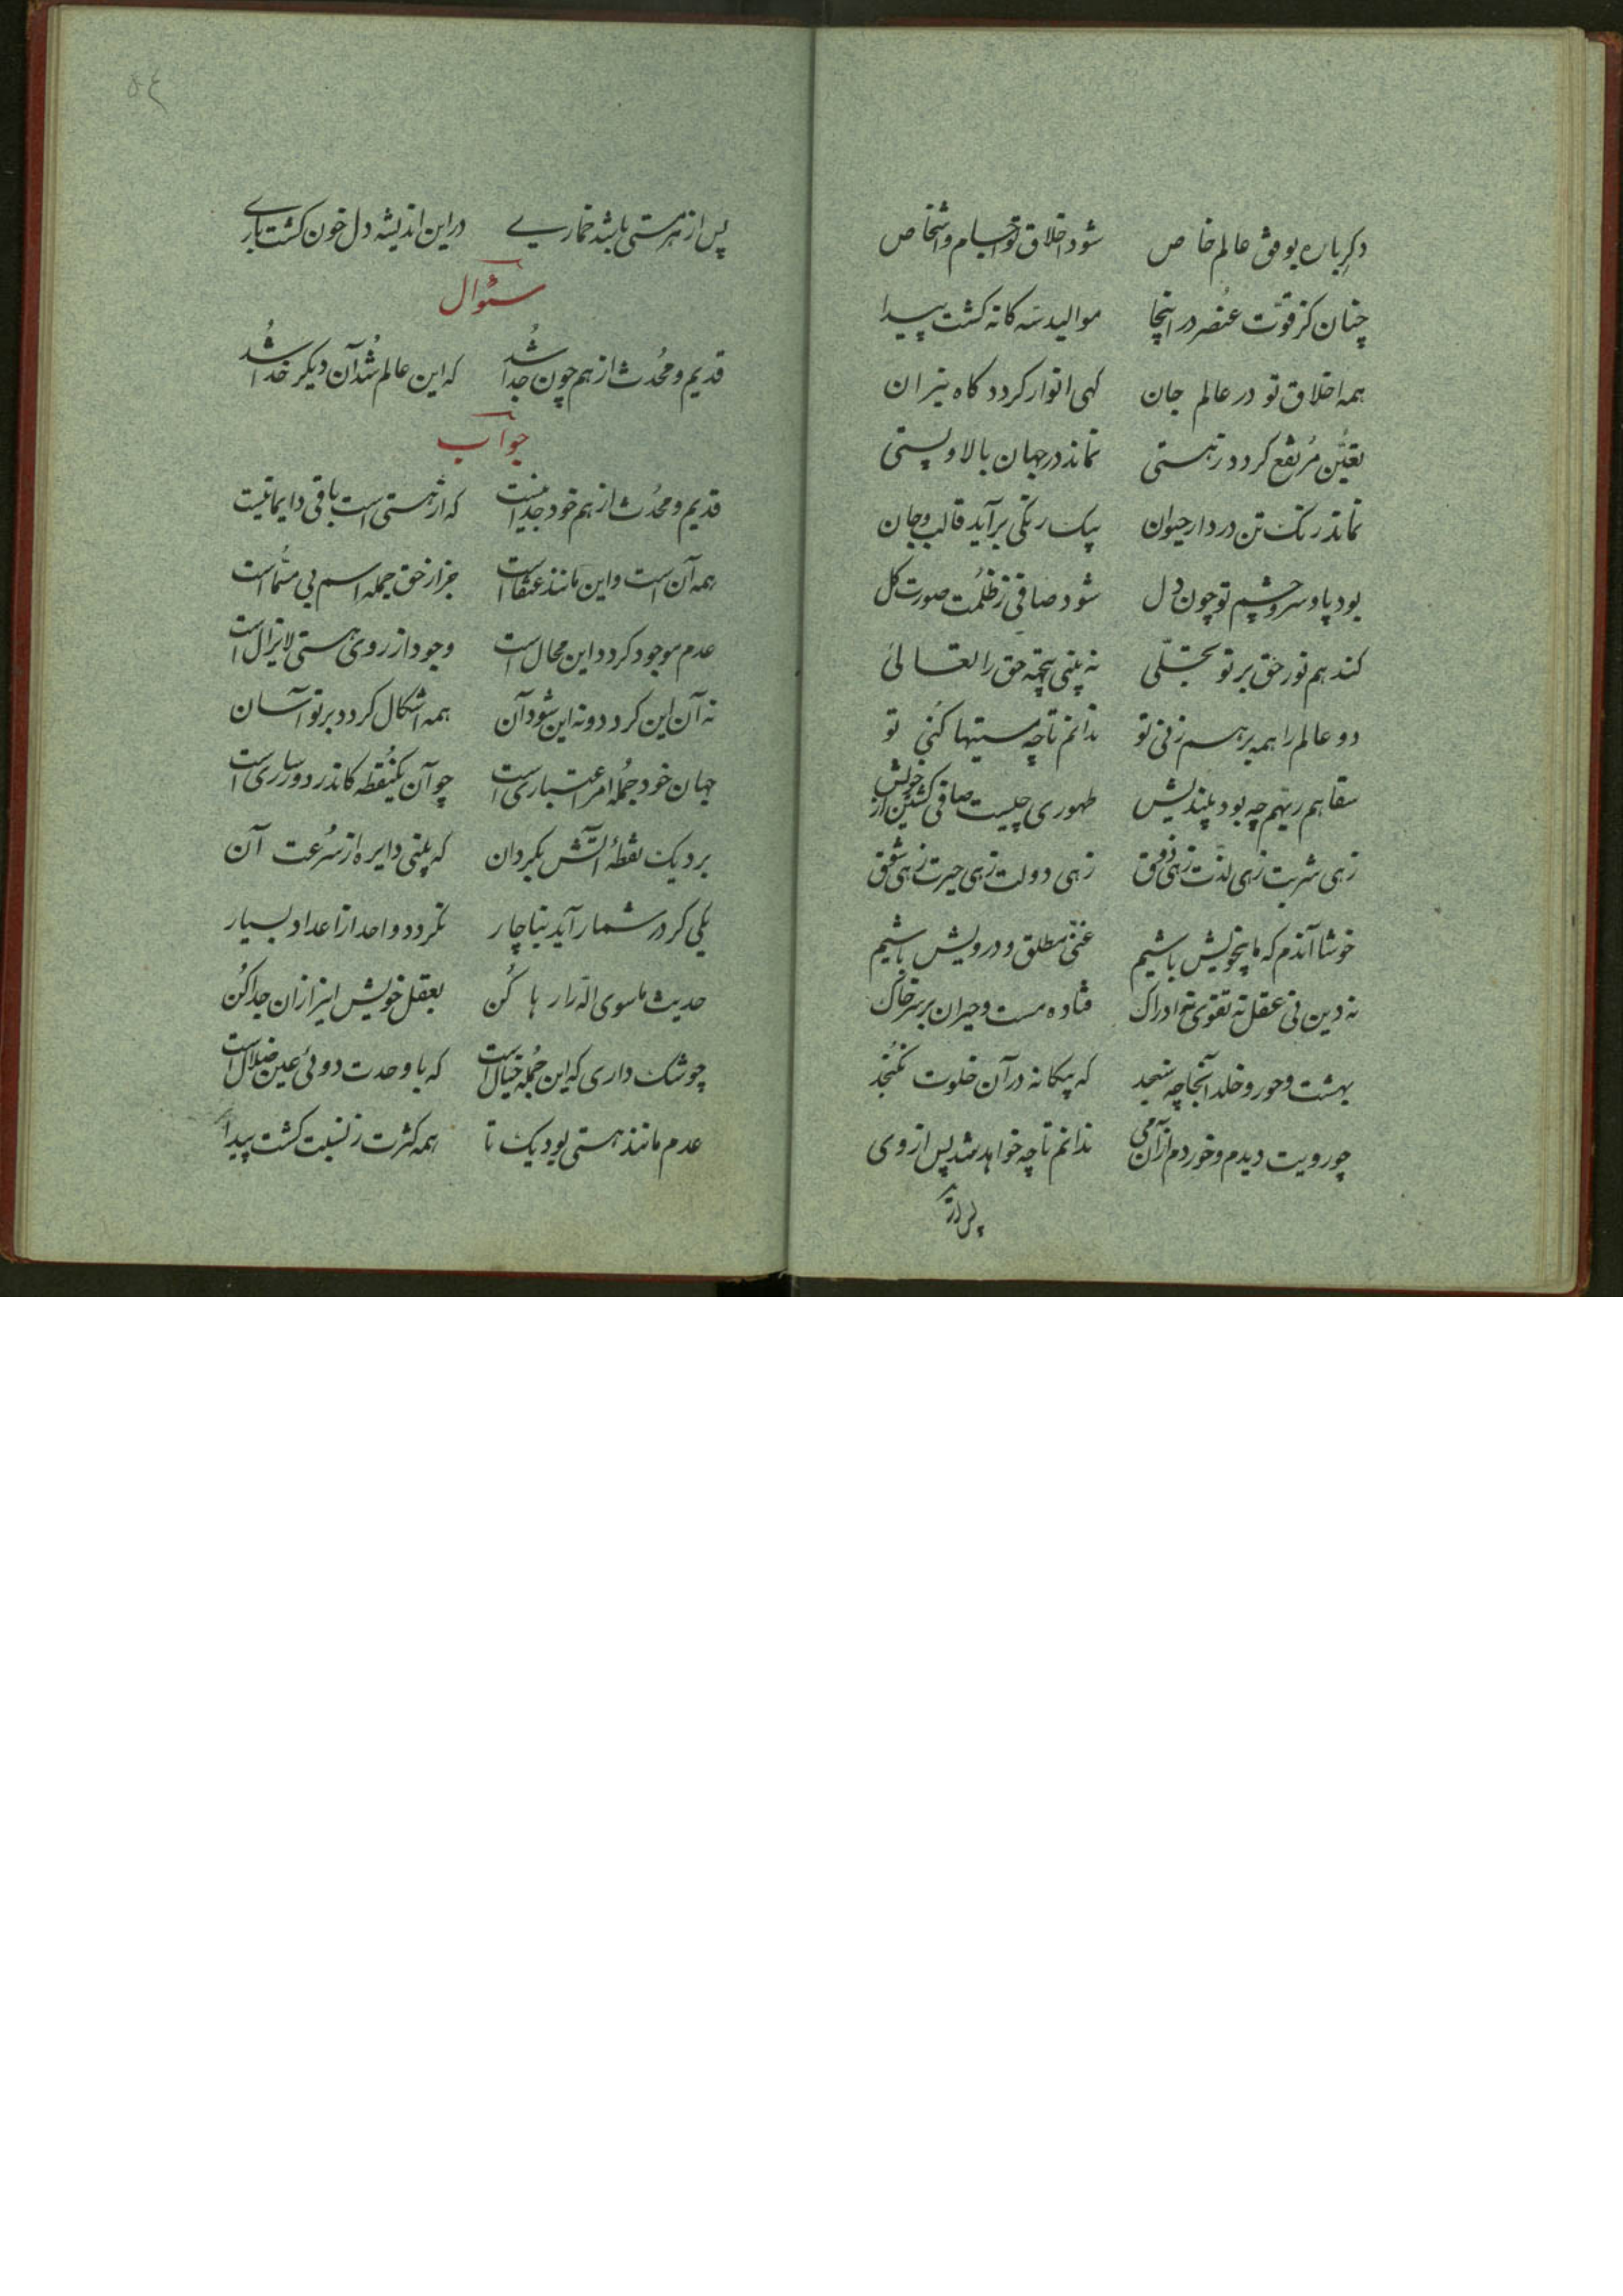 دکر باره بوفق عالم خاص شود اخلاق تو اجسام و اشخاص
چنان کز قوّت عنصر در اینجا موالید سه کانه کشت پیدا
همه اخلاق تو در عالم جان کهی انوار کردد کاه نیران
تعیّن مُرتفع کردد ز هستی نماند در جهان بالا و پستی
نماند رنک تن در دار حیوان بیک رنکی برآید قالب و جان
بود پا و سر و چشم تو چون دل شود صافی ز ظلمت صورت کل
کند هم نور حق بر تو تجلّی نه بینی بیجهة حق را تعالی
دو عالم را همه بر هم زنی تو ندانم تا چه مستیها کنی تو
سقاهم ربّهم چه بود بیندیش طهوری چیست صافی کشتن از خویش
زهی شربت زهی لذّت زهی ذوق زهی دولت زهی حیرت زهی شوق
خوشا آندم که ما بیخویش باشیم غنیّ مطلق و درویش باشیم
نه دین نی عقل نه تقوی نه ادراک فتاده مست و حیران بر سر خاک
بهشت و حور و خلد آنجا چه سنجد که بیکانه در آن خلوت نکُنجد
چو رویت دیدم و خوردم از آن می ندانم تا چه خواهد شد پس از وی
پس از
۵۴
پس از هر مستی باشد خماریے در این اندیشه دل خون کشت بارے
سئوال
قدیم و مُحدث از هم چون جدا شد که این عالم شُد آن دیکر خدا شُد
جواب
قدیم و محُدث از هم خود جدا نیست که از هستی است باقی دایما نیست
همه آن است و این مانند عنقا است جز از حق جمله اسم بی مسُما است
عدم موجود کردد این محال است وجود از روی هستی لایزال است
نه آن این کردد و نه این شود آن همه اشکال کردد بر تو آسان
جهان خود جُمله امر اعتباری است چو آن یکنُقطه کاندر دور ساری است
برو یک نقطهٔ آتش بکردان که بینی دایره از سُرعت آن
یکی کر در شمار آید بناچار نکردد واحد از اعداد بسیار
حدیث ماسوی الله را رها کُن بعقل خویش این را زان جدا کُن
چو شک داری که این جُمله خیال است که با وحدت دوئی عین ضلال است
عدم مانند هستی بود یک تا همه کثرت ز نسبت کشت پیدا